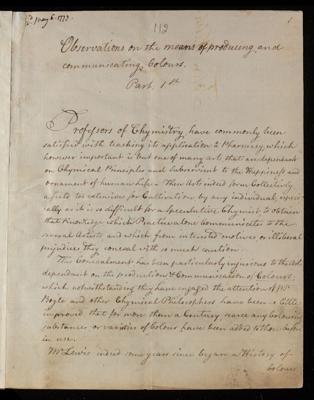 R. May 6. 1773.
112
1
Observations on the means of producing and
communicating Colours.
Part 1st
Professors of Chymistry, have commonly been
satisfied with teaching its application to Pharmacy, which
however important is but one of many arts that are dependent
on Chymical Principles and Subservient to the Happiness and
ornament of human Life. These Arts indeed form Collectively
a field too extensive for Cultivation by any individual, especi-
ally as it is so difficult for a Speculative Chymist to obtain
that Knowledge which Practice alone Communicates to the
several Artists and which from interested motives or illiberal
prejudices they conceal with so much caution.
This Concealment has been particularly injurious to the Arts
dependant on the production & Communication of Colours,
which notwithstanding they have engaged the attention of Mr.
Boyle and other Chymical Philosophers have been so little
improved that for more than a Century, scarce any Colouring
substances or varieties of Colour have been added to those before
in use.
Mr. Lewis indeed some years since began a History of
Colours